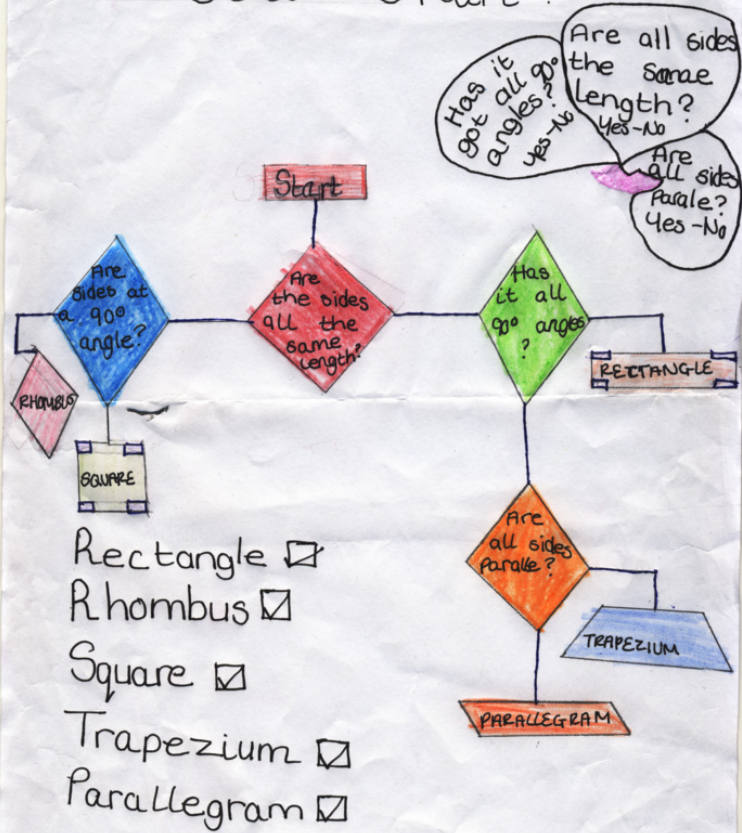 Has it
got all 90°
angles?
Yes-No
Are all sides
the same
length?
Yes-No
Are
all sides
Parale?
Yes-No
Start
Are
sides at
a 90°
angle?
Are
the sides
all the
same
length?
Has
it all
90° angles
?
RHOMBUS
SQUARE
RECTANGLE
Are
all sides
Paralle?
TRAPEZIUM
PARALLEGRAM
Rectangle
Rhombus
Square
Trapezium
Parallegram